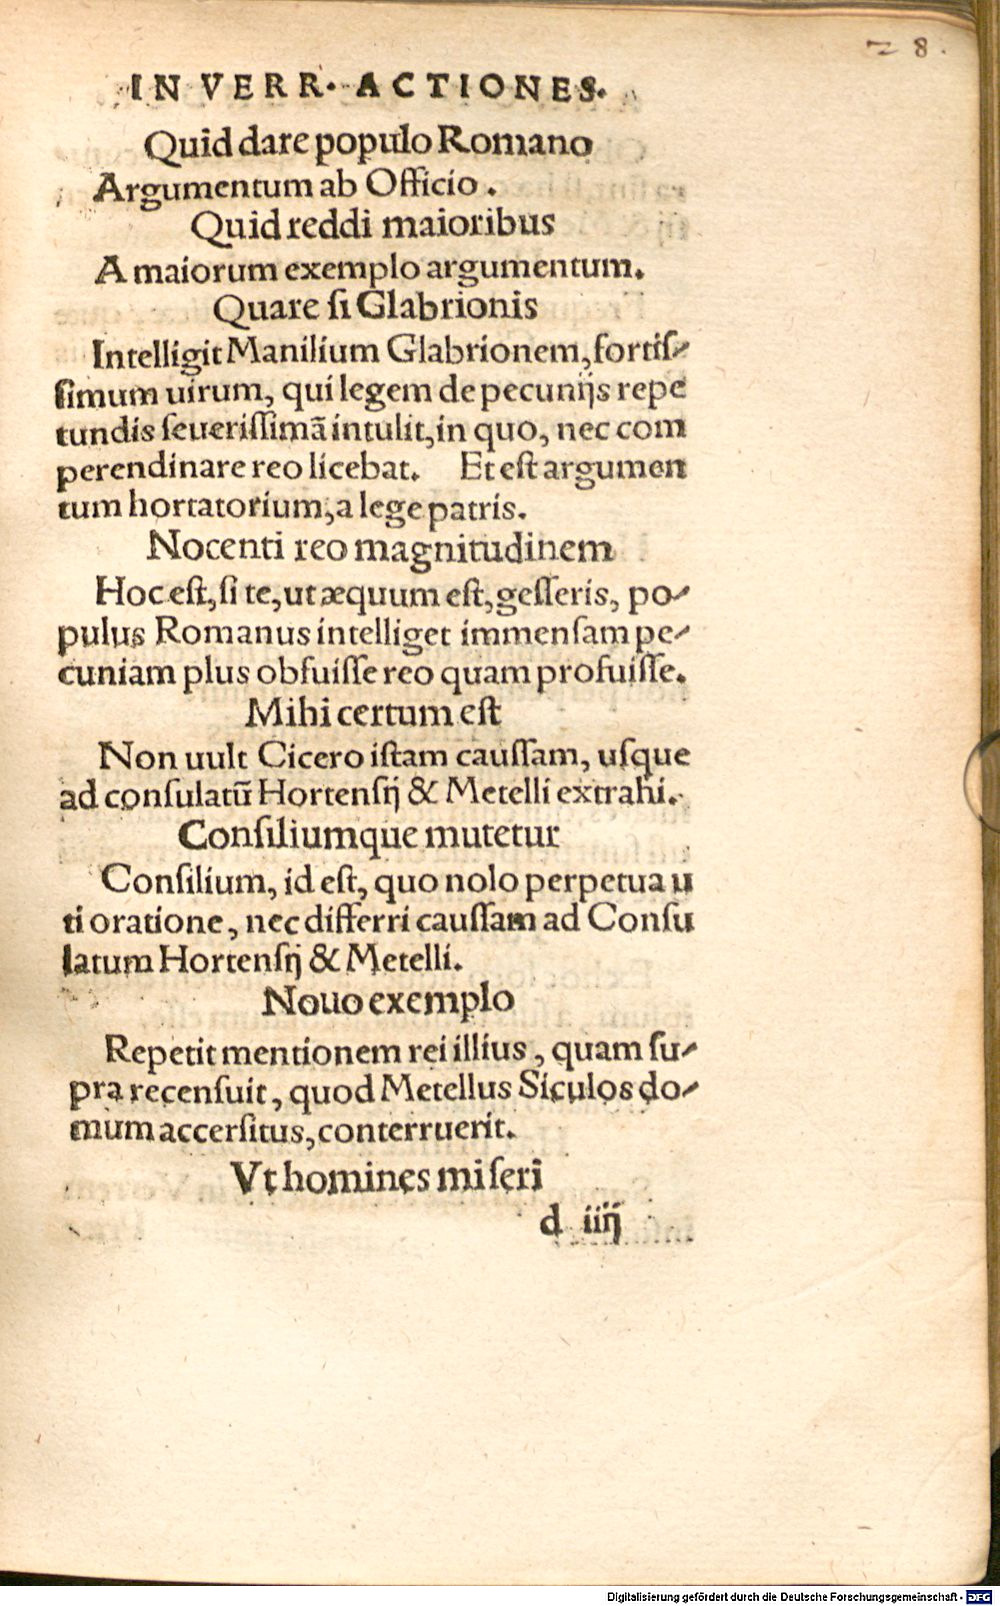 28.
IN VERR. ACTIONES.
Quid dare populo Romano
Argumentum ab Officio.
Quid reddi maioribus
A maiorum exemplo argumentum.
Quare ſi Glabrionis
Intelligit Manilium Glabrionem, fortiſ-
ſimum uirum, qui legem de pecunijs repe
tundis ſeueriſſimã intulit, in quo, nec com
perendinare reo licebat. Et eſt argumen
tum hortatorium, a lege patris.
Nocenti reo magnitudinem
Hoc eſt, ſi te, ut æquum eſt, geſſeris, po-
pulus Romanus intelliget immenſam pe-
cuniam plus obfuiſſe reo quam profuiſſe.
Mihi certum eſt
Non uult Cicero iſtam cauſſam, uſque
ad conſulatũ Hortenſij & Metelli extrahi.
Conſiliumque mutetur
Conſilium, id eſt, quo nolo perpetua u
ti oratione, nec differri cauſſam ad Conſu
latum Hortenſij & Metelli.
Nouo exemplo
Repetit mentionem rei illius, quam ſu-
pra recenſuit, quod Metellus Siculos do-
mum accerſitus, conterruerit.
Vt homines miſeri
d iiij
Digitalisierung gefördert durch die Deutsche Forschungsgemeinschaft - DFG